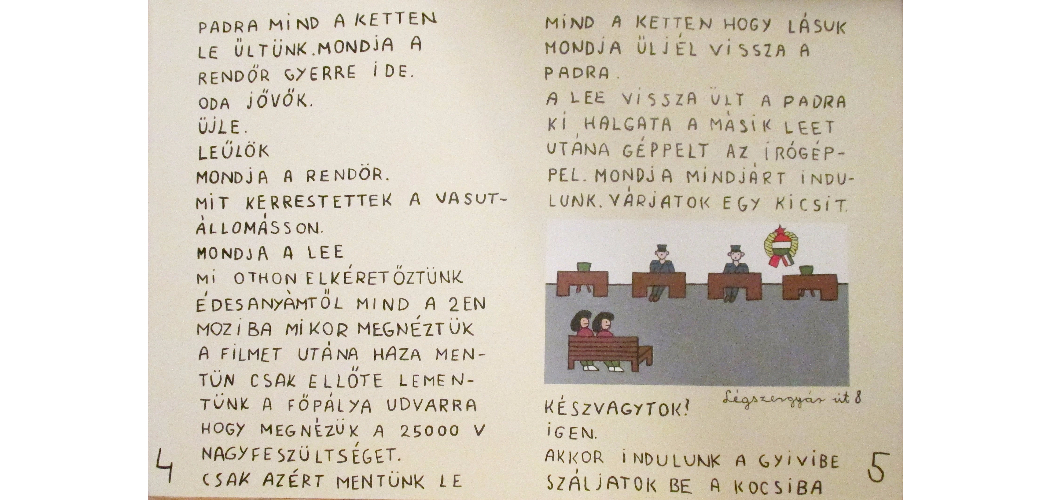 PADRA MIND A KETTEN
LE ŰLTÜNK.MONDJA A
RENDŐR GYERRE IDE.
ODA JŐVŐK.
ÜJLE.
LEŰLÖK
MONDJA A RENDŐR.
MIT KERRESTETTEK A VASUT-
ÁLLOMÁSSON.
MONDJA A LEE
MI OTHON ELKÉRETŐZTÜNK
ÉDESANYÁMTŐL MIND A 2EN
MOZIBA MIKOR MEGNÉZTÜK
A FILMET UTÁNA HAZA MEN-
TÜN CSAK ELLŐTE LEMEN-
TÜNK A FŐPÁLYA UDVARRA
HOGY MEGNÉZÜK A 25000 V
NAGYFESZÜLTSÉGET.
CSAK AZÉRT MENTÜNK LE
4
MIND A KETTEN HOGY LÁSUK
MONDJA ÜLJÉL VISSZA A
PADRA.
A LEE VISSZA ÜLT A PADRA
KI HALGATA A MÁSIK LEET
UTÁNA GÉPPELT AZ IRÓGÉP-
PEL. MONDJA MINDJÁRT INDU-
LUNK. VÁRJATOK EGY KICSIT.
Légszergyár út 8
KÉSZVAGYTOK?
IGEN.
AKKOR INDULUNK A GYIVIBE
SZÁLJATOK BE A KOCSIBA
5